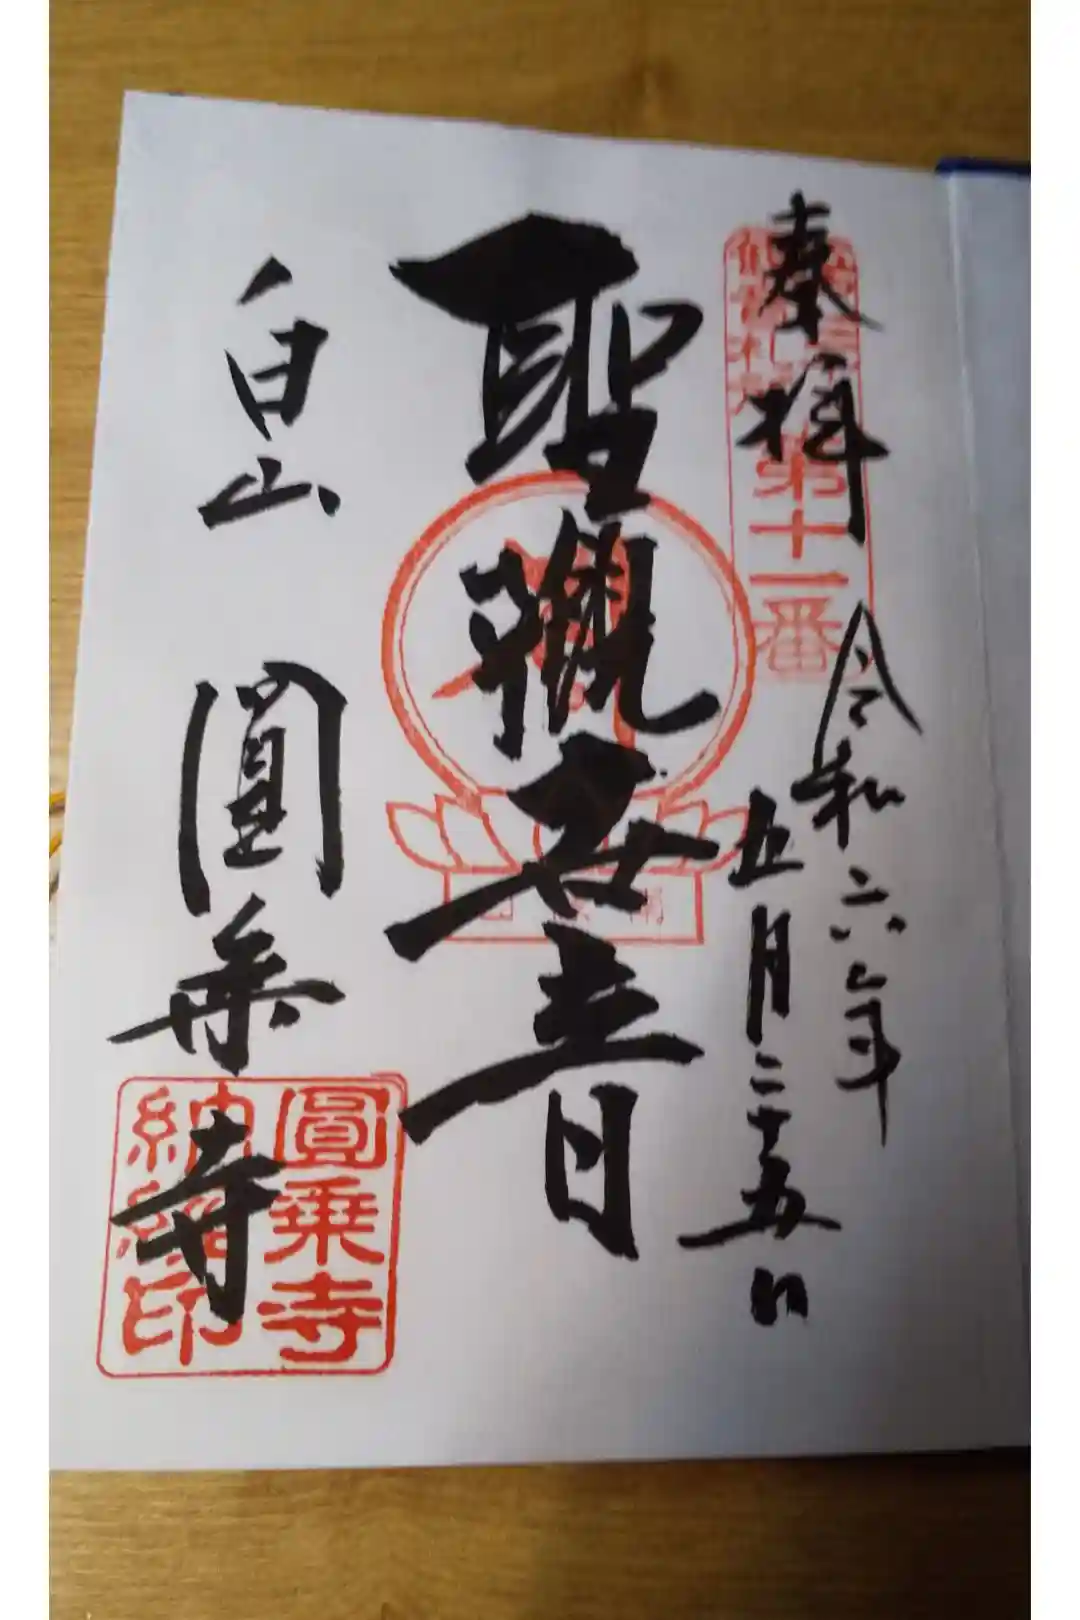 奉拝
第十一番
令和六年
五月二十五日
聖観世音
白山 圓乗寺
圓乗寺
納経印